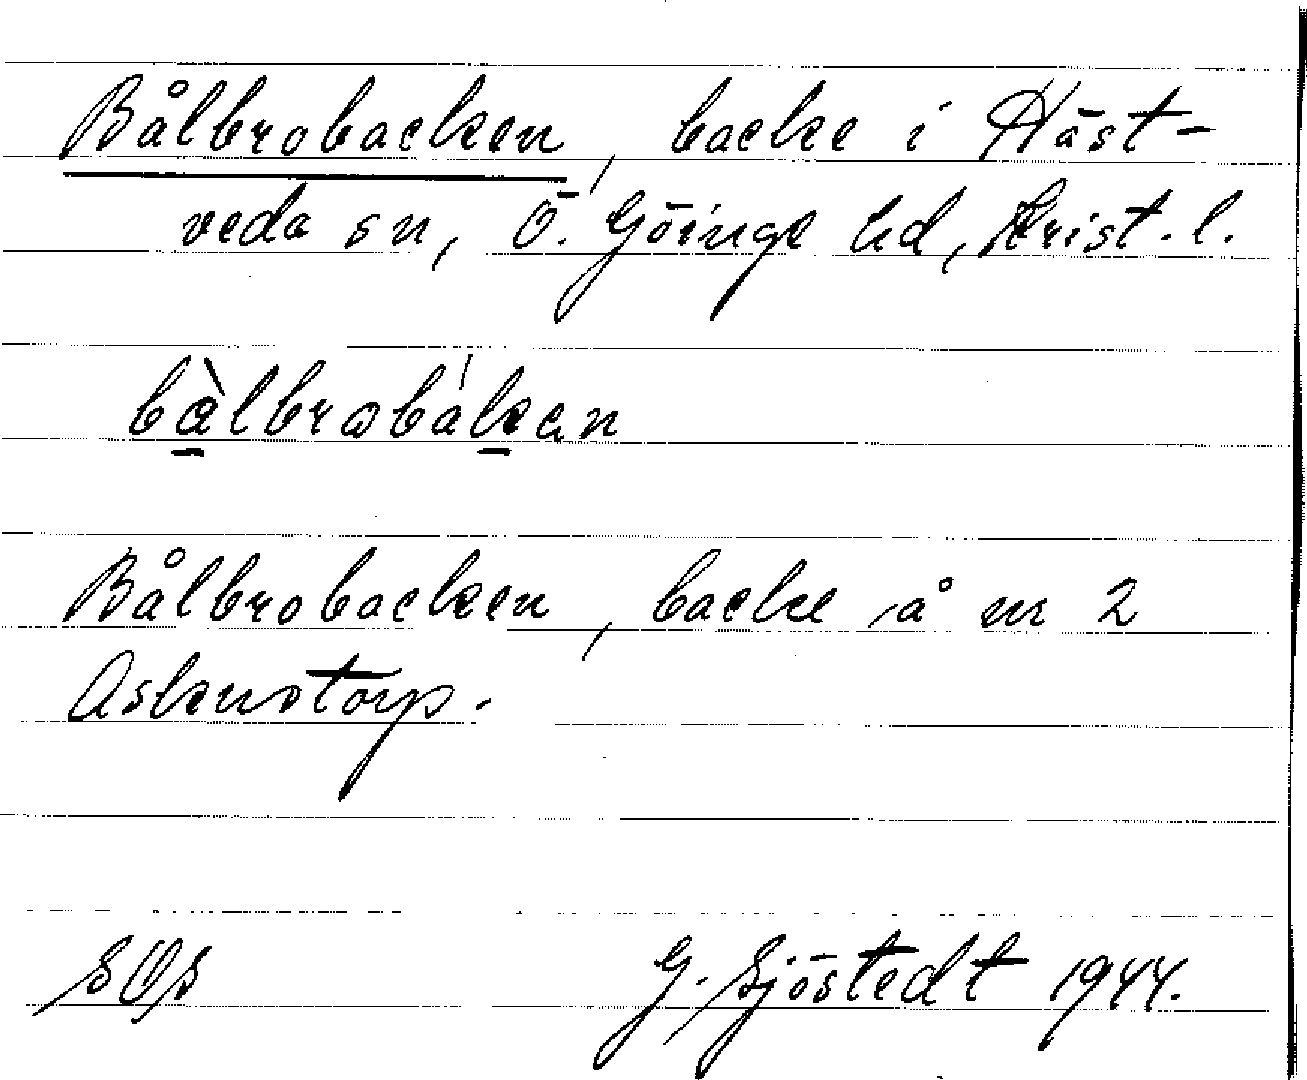 Bålbrobacken, backe i Häst-
veda sn, Ö. Göinge hd, Krist. l.
Bålbrobacken, backe å nr 2
Askenstorp.
G. Sjöstedt 1944.